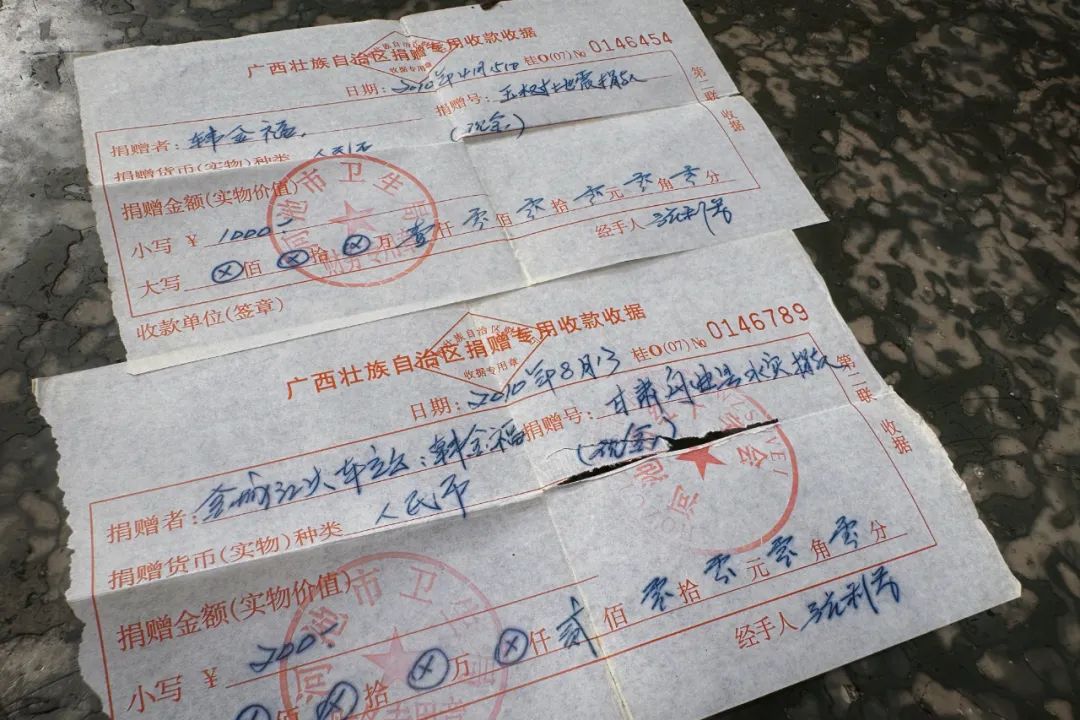 广西壮族自治区捐赠专用收款收据
族自治区
收据专用章
日期：2010年4月15日 桂O(07)No 0146454
捐赠者：韩金福 捐赠号：玉树地震捐款
捐赠货币(实物)种类 人民币 (现金)
捐赠金额(实物价值)
小写 ¥ 1000
大写 ⊗佰⊗拾⊗万壹仟零佰零拾零元零角零分
收款单位(签章) 经手人
第二联 收据
河池市卫生局
财务专用章
广西壮族自治区捐赠专用收款收据
族自治区
收据专用章
日期：2010年8月13 桂O(07)No 0146789
捐赠者：金城江火车站：韩金福 捐赠号：甘肃舟曲县水灾捐款
捐赠货币(实物)种类 人民币 (现金)
捐赠金额(实物价值)
小写 ¥ 200
佰⊗拾⊗万⊗仟贰佰零拾零元零角零分
经手人
第二联 收据
河池市卫生局
河池